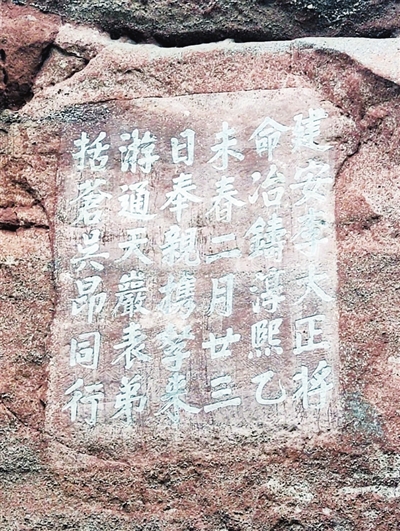 建安李大正将
命冶鑄淳熙乙
未春二月廿三
日奉親携孥来
游通天巖表弟
括蒼吳昂同行